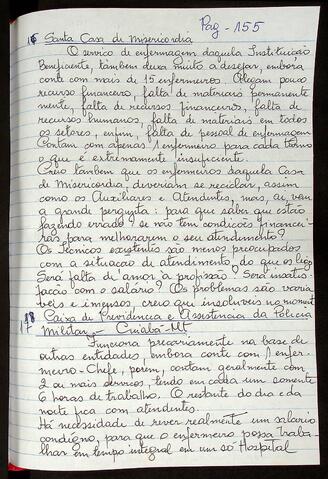 Pag - 155
16 Santa Casa de Misericordia
O serviço de enfermagem daquela Instituição
Beneficente, também deixa muito a desejar, embora
conte com mais de 15 enfermeiros. Alegam pouco
recurso financeiro, falta de materiais permanente
mente, falta de recursos financeiros, falta de
recursos humanos, falta de materiais em todos
os setores, enfim, falta de pessoal de enfermagem
Contam com apenas 1 enfermeiro para cada turno
o que é extremamente insuficiente.
Creio também que os enfermeiros daquela Casa
de Misericordia, deveriam se reciclar, assim
como os Auxiliares e Atendentes, mas, aí vem
a grande pergunta: para que saber que estão
fazendo errado? se não tem condições financei-
ras para melhorarem o seu atendimento?
Os Técnicos existentes são menos preocupados
com a situação de atendimento, do que os leigos
Será falta d'amor à profissão? Será insatis-
fação com o salário? Os problemas são variá
veis e imensos, creio que insoluveis no momento
17 Caixa de Previdência e Assistência da Policia
Militar - Cuiabá-Mt
Funciona precariamente na base de
outras entidades, embora conte com 1 enfer-
meiro-Chefe, porém, contam geralmente com
2 ou mais serviços, tendo em cada um somente
6 horas de trabalho. O restante do dia e da
noite fica com atendentes.
Há necessidade de rever realmente um salario
condigno, para que o enfermeiro possa traba-
lhar em tempo integral em um só Hospital